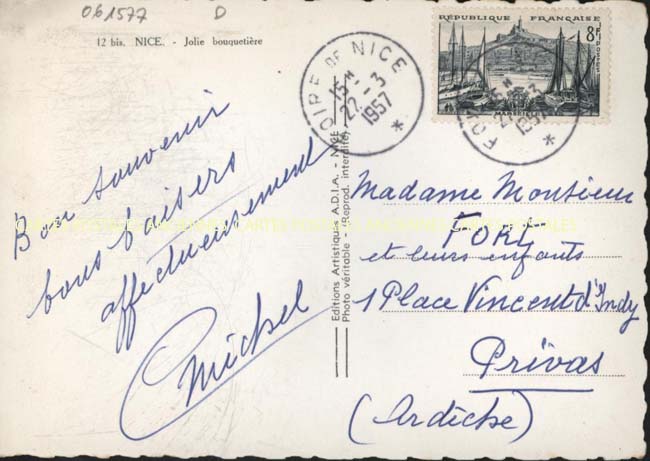 061577 D
12 bis. NICE. - Jolie bouquetière
FOIRE DE NICE
15 H
22 - 3
1957
RÉPUBLIQUE FRANÇAISE
8F
POSTES
MARSEILLE
Bon souvenir
bons baisers
affectueusement
Michel
Editions Artistiques A.D.I.A. - NICE
Photo véritable - (Reprod. interdite)
Madame Monsieur
FORT
et leurs enfants
1 Place Vincent d'Indy
Privas
(Ardèche)